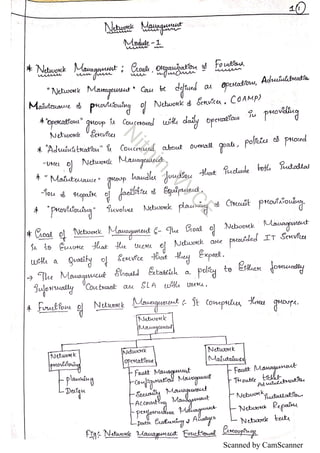 1
Network Management
Module-1
* Network Management ; Goals, Organization & Function
"Network Management" can be defined as operation, Administration
Maintenance & provisioning of Network & Services. (OAMP)
* "operations" group is concerned with daily operation in providing
Network Services
* "Administration" is concerned about overall goals, policies & proced
-ures of Network Management.
* "Maintenance" group handle function that include both Installat
-ion & repairs of facilities & Equipment.
* "provisioning" involves Network planning & Circuit provisioning.
* Goal of Network Management :- The Goal of Network Management
is to Ensure that the users of Network are provided IT Services
with a Quality of Service that they Expect.
→ The Management should Establish a policy to Either formally
Informally Contract an SLA with users.
* Functions of Network Management :- It comprises three groups.
Network
Management
Network
provisioning
Network
operations
Network
Maintenance
- Planning
- Design
- Fault Management
- Configuration Management
- Security Management
- Accounting Management
- performance Management
- Data Gathering & Analysis
- Fault Management
- Trouble ticket
Administration
- Network Installation
- Network Repairs
- Network tests
Fig: Network Management Functional Groupings
Scanned by CamScanner